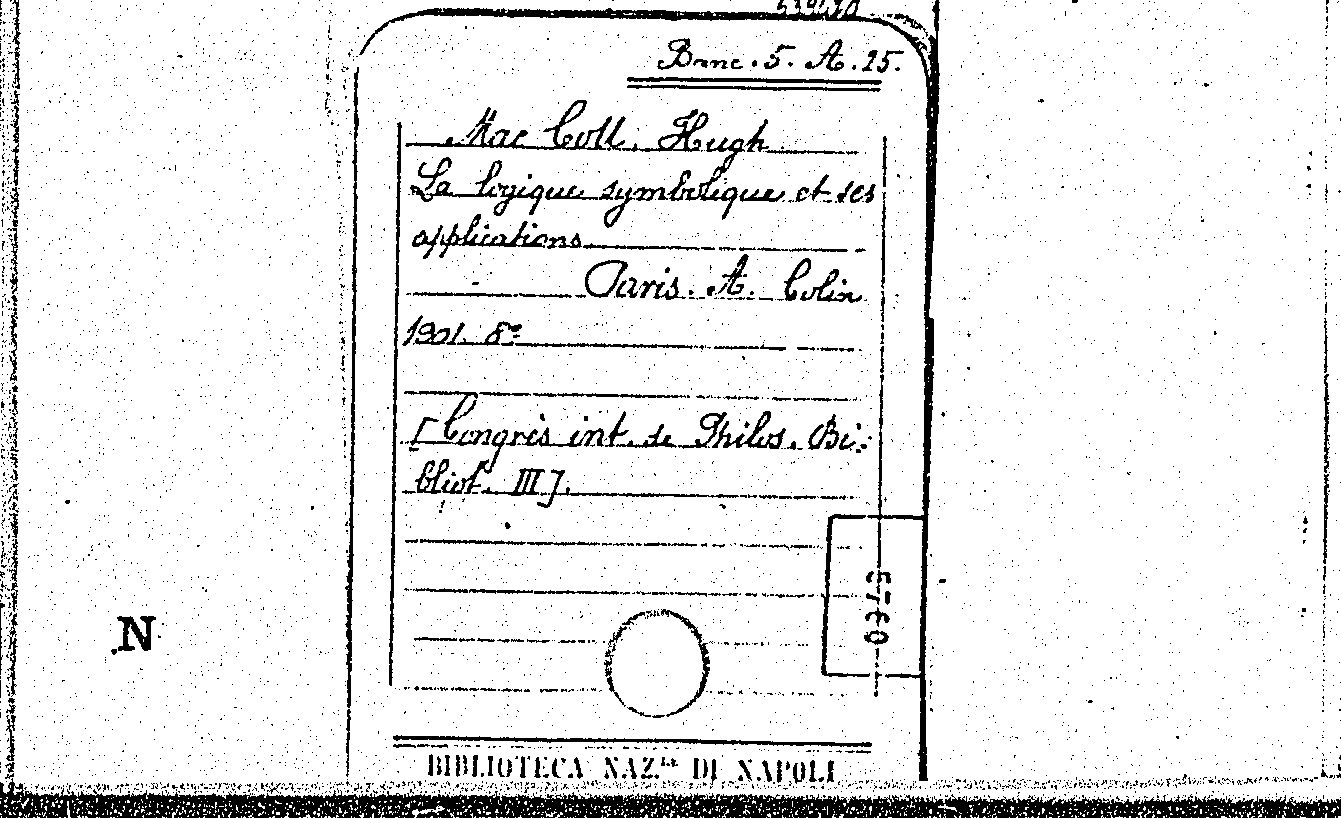 Branc. 5. A. 25.
Mac Coll. Hugh
La logique symbolique et ses
applications
Paris. A. Colin
1901. 8º
[Congrès int. de Philos. Bi-
bliot. III].
N
BIBLIOTECA NAZ.LE DI NAPOLI